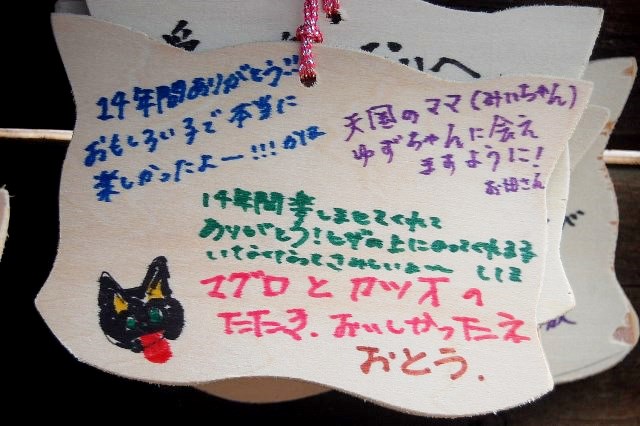 14年間ありがとう!!
おもしろい子で本当に
楽しかったよー!!!
天国のママ(みいちゃん)
ゆずちゃんに会え
ますように!
お母さん
14年間楽しませてくれて
ありがとう!ヒザの上にのってくれる子
いなくなってさみしいよ〜
マグロとカツオの
たたき、おいしかったネ
おとう.